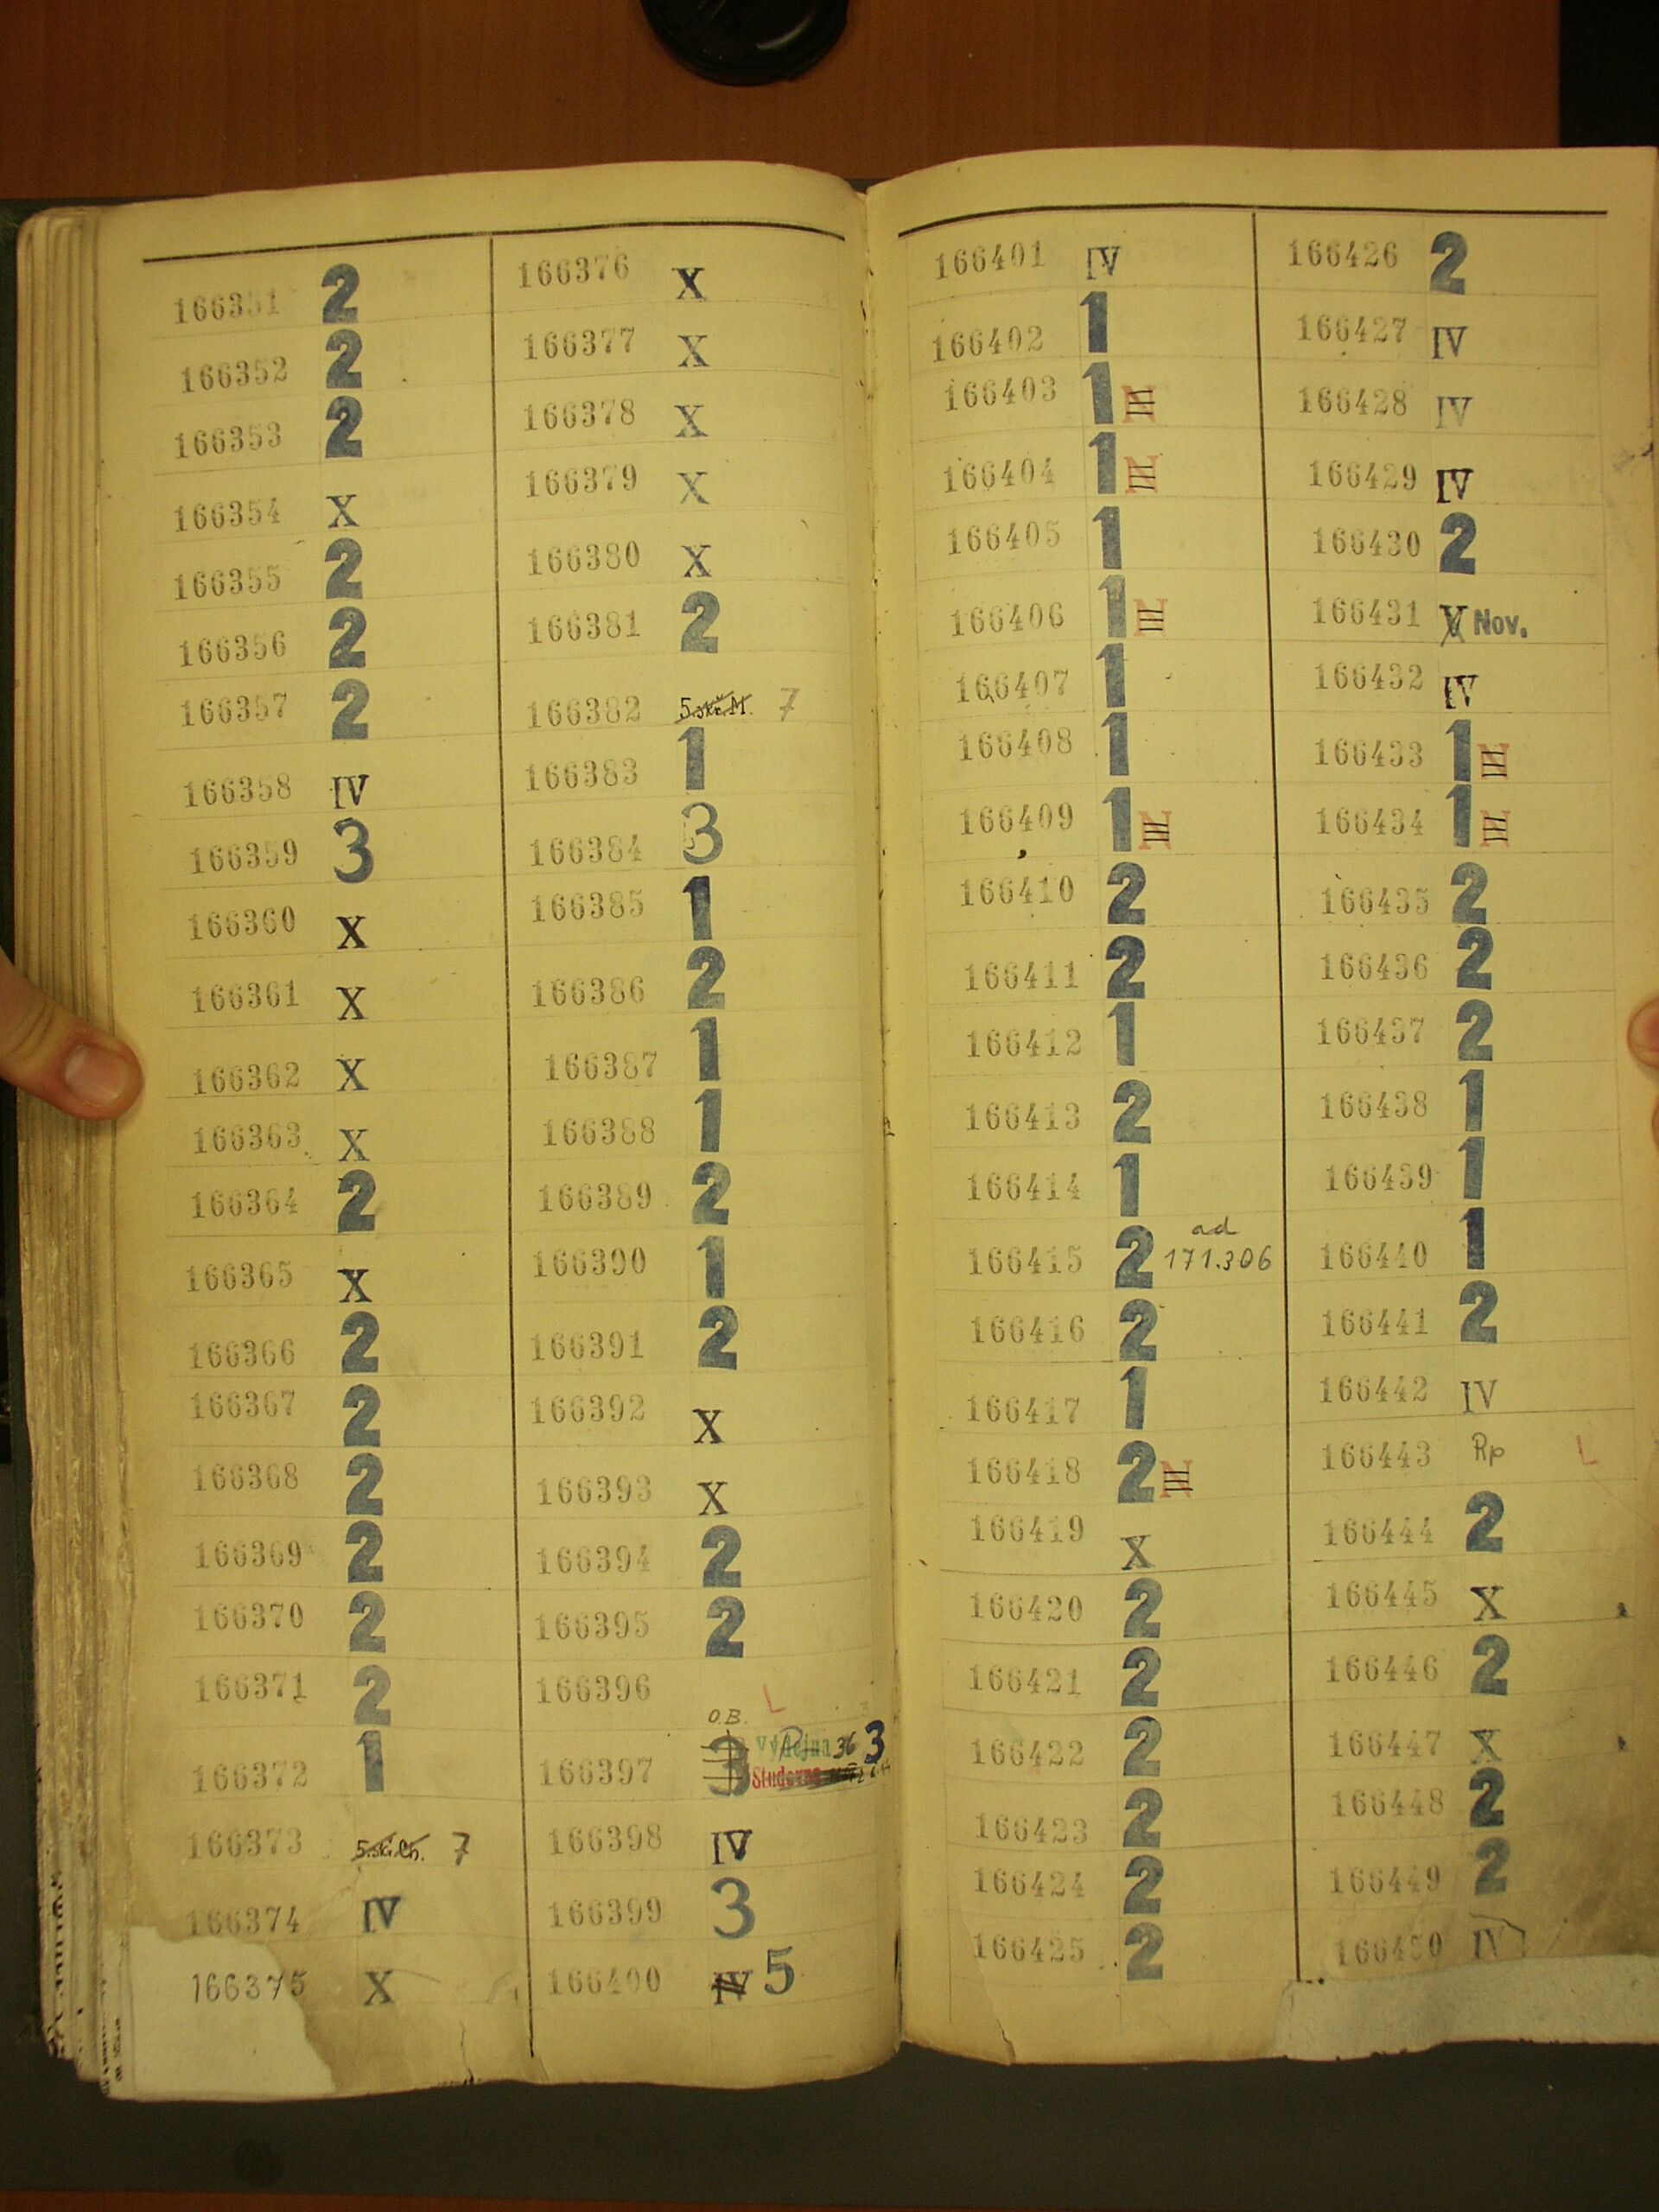 166351 2
166352 2
166353 2
166354 X
166355 2
166356 2
166357 2
166358 IV
166359 3
166360 X
166361 X
166362 X
166363 X
166364 2
166365 X
166366 2
166367 2
166368 2
166369 2
166370 2
166371 2
166372 1
166373 7
166374 IV
166375 X
166376 X
166377 X
166378 X
166379 X
166380 X
166381 2
166382 7
166383 1
166384 3
166385 1
166386 2
166387 1
166388 1
166389 2
166390 1
166391 2
166392 X
166393 X
166394 2
166395 2
166396 L
O.B.
166397 3 Výdejna 36 3
166398 IV
166399 3
166400 IV 5
166401 IV
166402 1
166403 1 N
166404 1 N
166405 1
166406 1 N
166407 1
166408 1
166409 1 N
166410 2
166411 2
166412 1
166413 2
166414 1
ad
166415 2 171.306
166416 2
166417 1
166418 2 N
166419 X
166420 2
166421 2
166422 2
166423 2
166424 2
166425 2
166426 2
166427 IV
166428 IV
166429 IV
166430 2
166431 X Nov.
166432 IV
166433 1 N
166434 1 N
166435 2
166436 2
166437 2
166438 1
166439 1
166440 1
166441 2
166442 IV
166443 Rp L
166444 2
166445 X
166446 2
166447 X
166448 2
166449 2
166450 IV